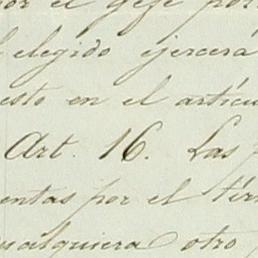 por el gefe po
el elegido ejercerá
esto en el artícu
Art. 16. Las
entas por el tér
cualquiera otro